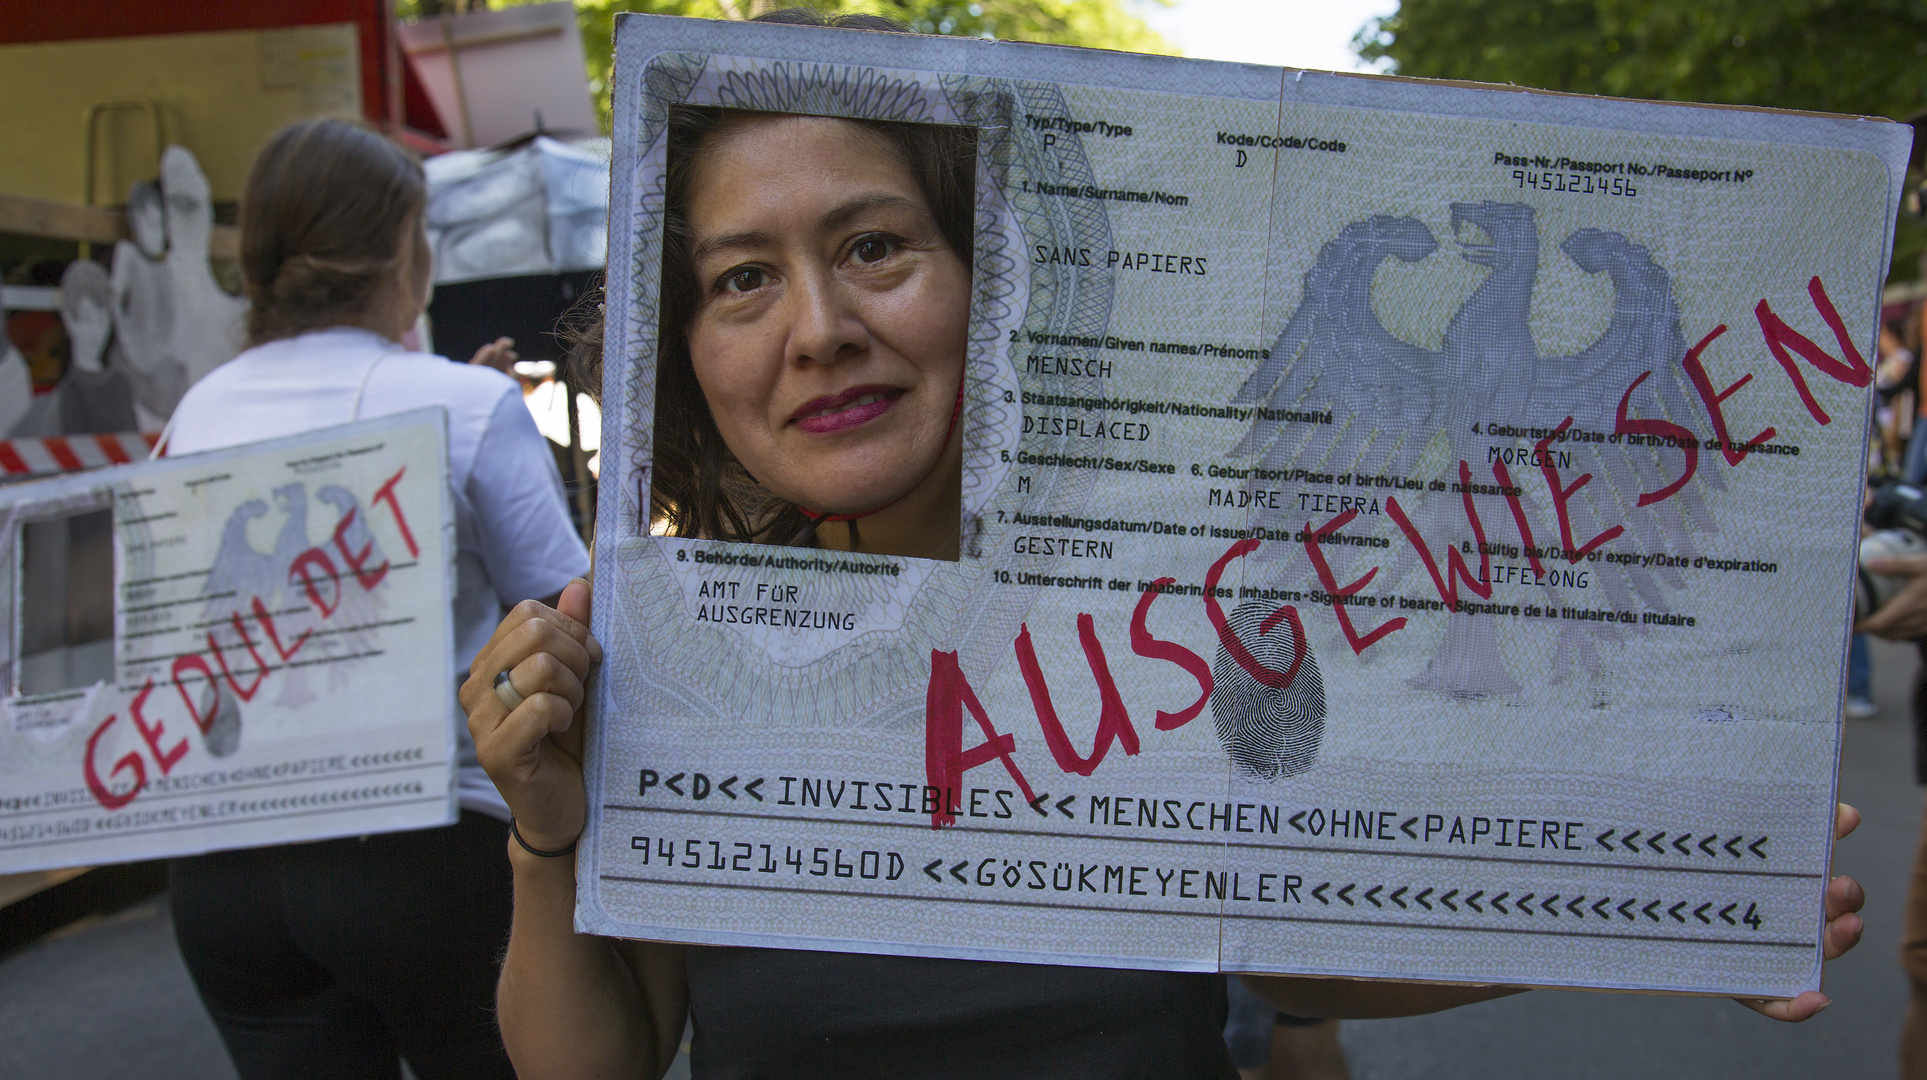 Typ/Type/Type Kode/Code/Code Pass-Nr./Passport No./Passeport Nº
P D 945121456
1. Name/Surname/Nom
SANS PAPIERS
2. Vornamen/Given names/Prénoms
MENSCH
3. Staatsangehörigkeit/Nationality/Nationalité 4. Geburtstag/Date of birth/Date de naissance
DISPLACED MORGEN
5. Geschlecht/Sex/Sexe 6. Geburtsort/Place of birth/Lieu de naissance
M MADRE TIERRA
7. Ausstellungsdatum/Date of issue/Date de délivrance 8. Gültig bis/Date of expiry/Date d'expiration
GESTERN LIFELONG
9. Behörde/Authority/Autorité
AMT FÜR
AUSGRENZUNG
10. Unterschrift der Inhaberin/des Inhabers-Signature of bearer-Signature de la titulaire/du titulaire
AUSGEWIESEN
P<D<< INVISIBLES << MENSCHEN<OHNE<PAPIERE <<<<<<<
9451214560D <<GÖSÜKMEYENLER<<<<<<<<<<<<<<<<<4
GEDULDET
MENSCHEN<OHNE<PAPIERE <<<<<<<